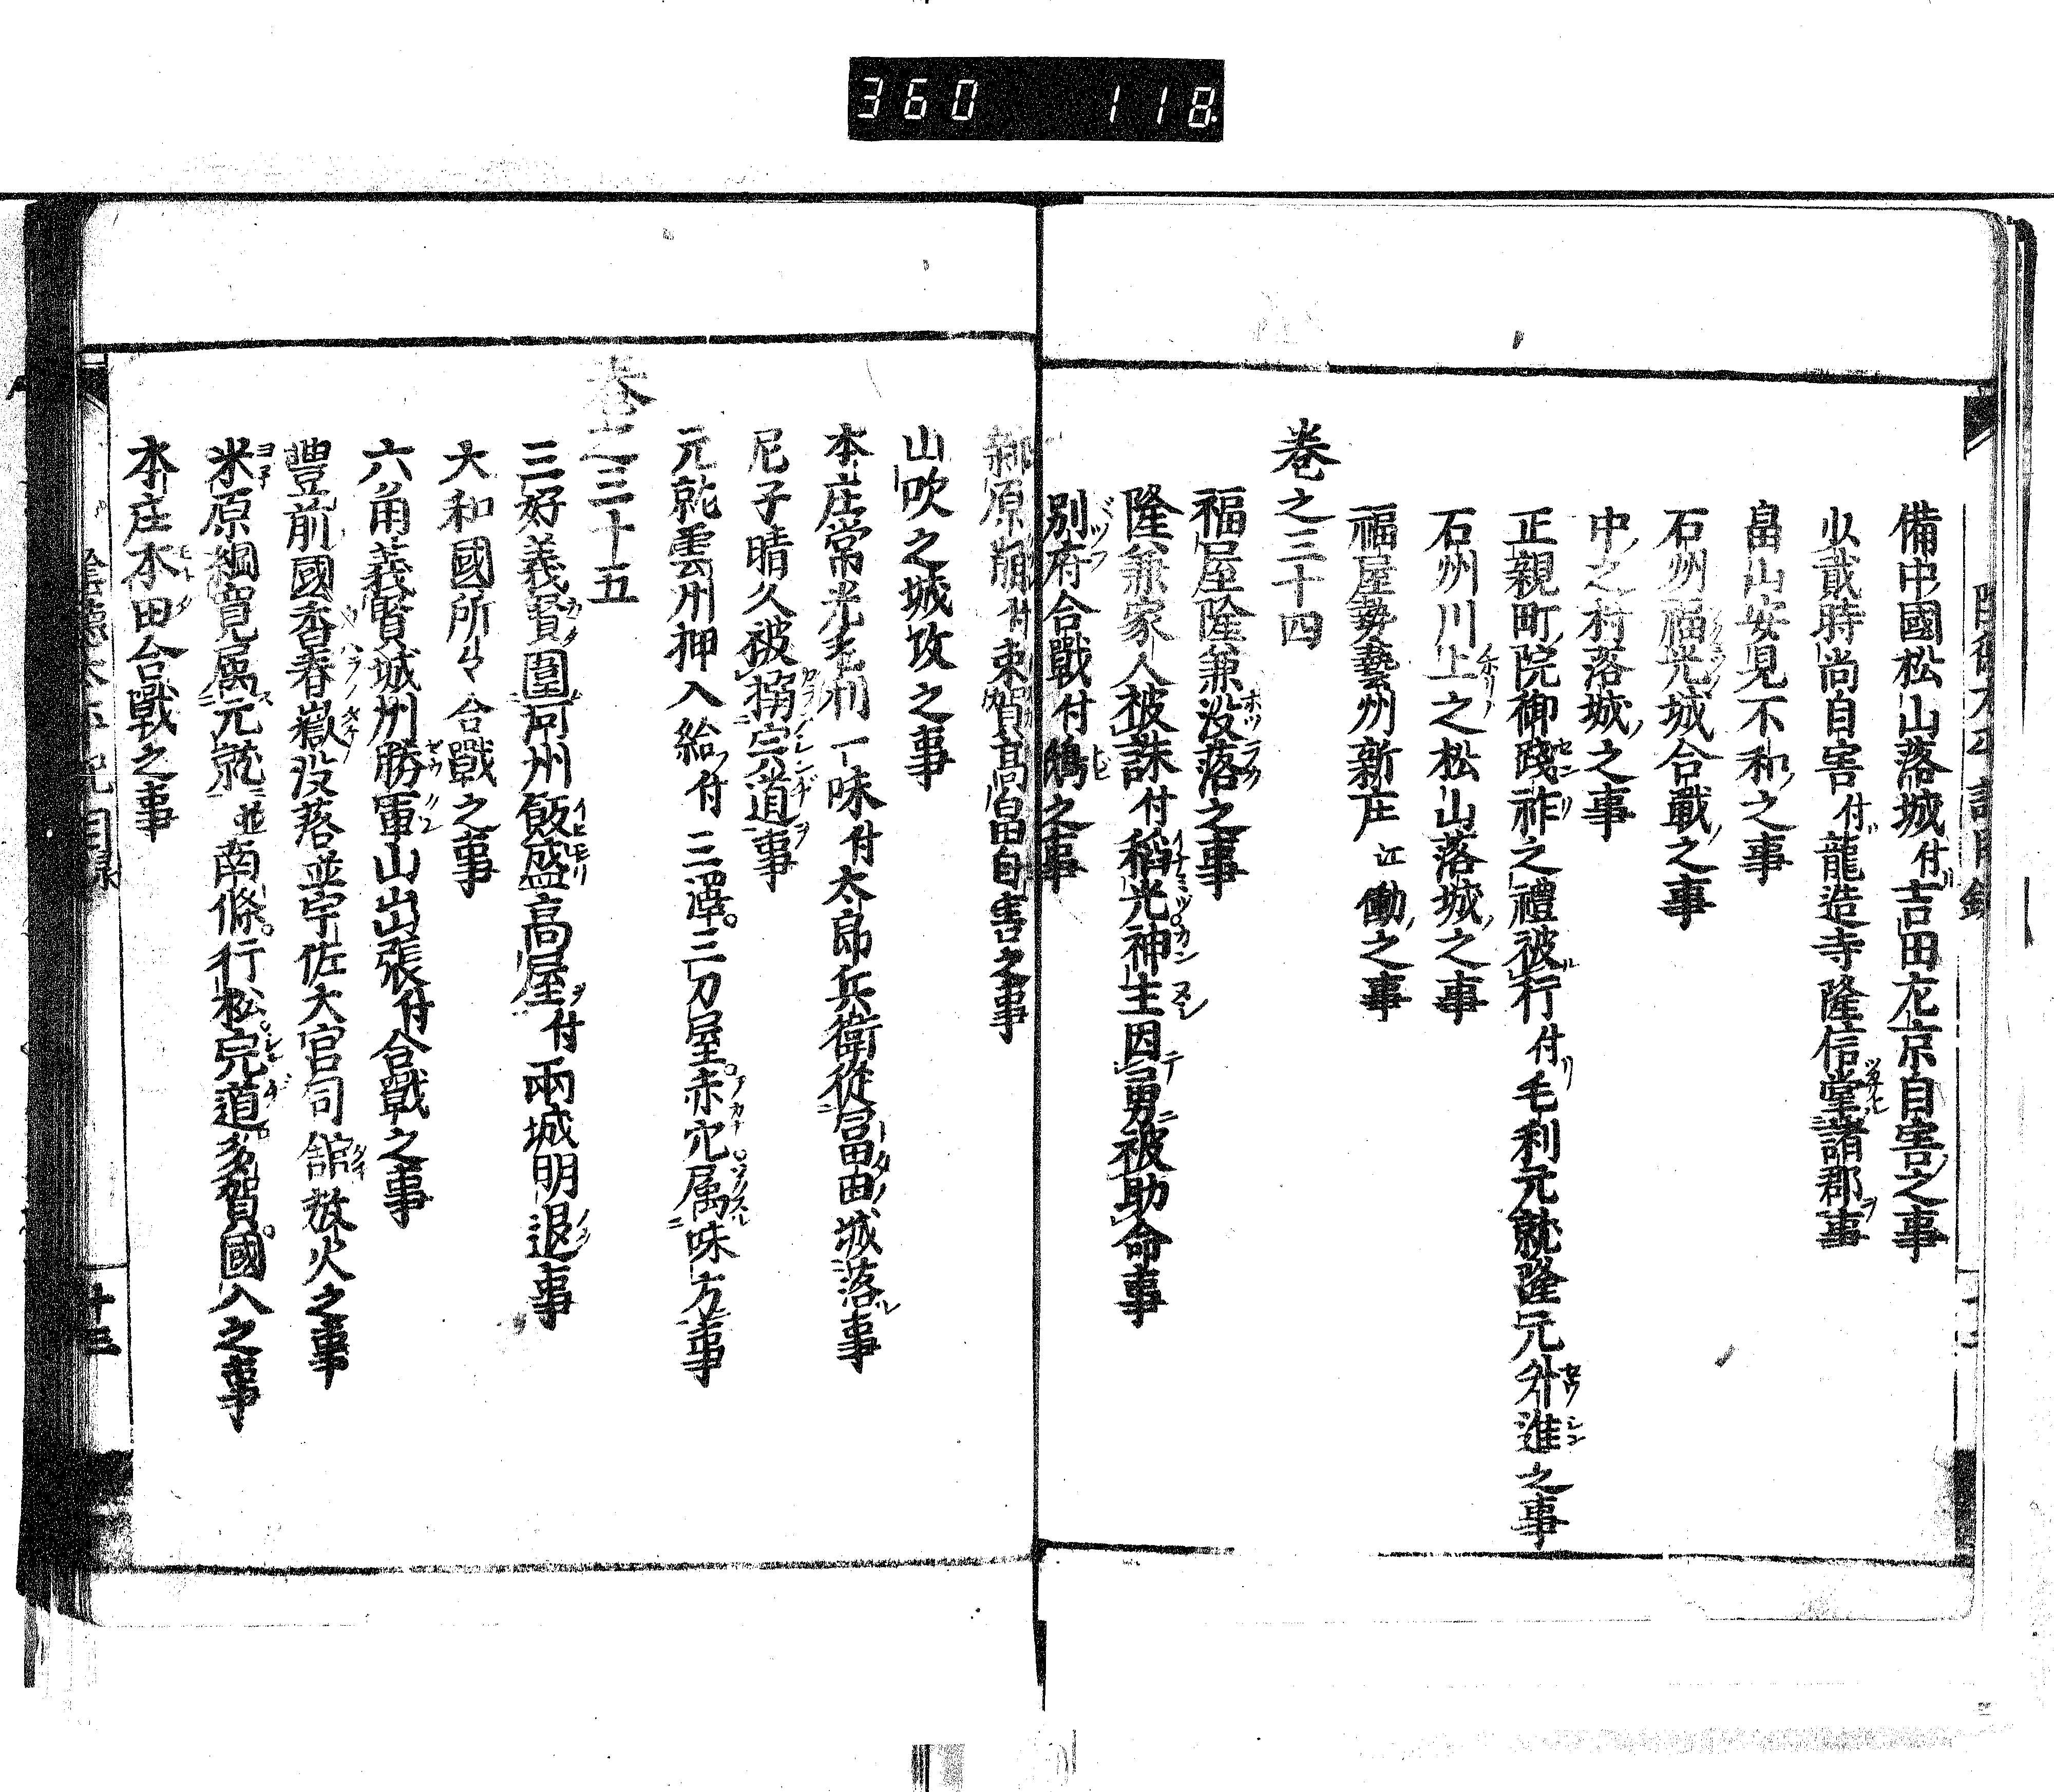 360 118
備中國松山落城付吉田左京自害之事
少貳時尚自害付龍造寺隆信掌諸郡事
畠山安見不和之事
石州福光城合戰之事
中之村落城之事
正親町院御踐祚之禮被行付毛利元就隆元升進之事
石州川上之松山落城之事
福屋勢藝州新庄江働之事
巻之三十四
福屋隆兼没落之事
隆兼家人被誅付稻光神主因勇被助命事
別府合戰付鵄之事
原崩付束賀高畠自害之事
山吹之城攻之事
本庄常光毛利一味付太郎兵衛從冨田城落事
尼子晴久被擒宍道事
元就雲州押入給付三澤三刀屋赤穴属味方事
巻之三十五
三好義賢圍河州飯盛高屋付兩城明退事
大和國所々合戰之事
六角義賢城州勝軍山出張付合戰之事
豊前國香春嶽没落並宇佐大宮司舘放火之事
米原綱寛属元就並南條行松宍道多賀國入之事
本庄本田合戰之事
陰德太平記目録
十三